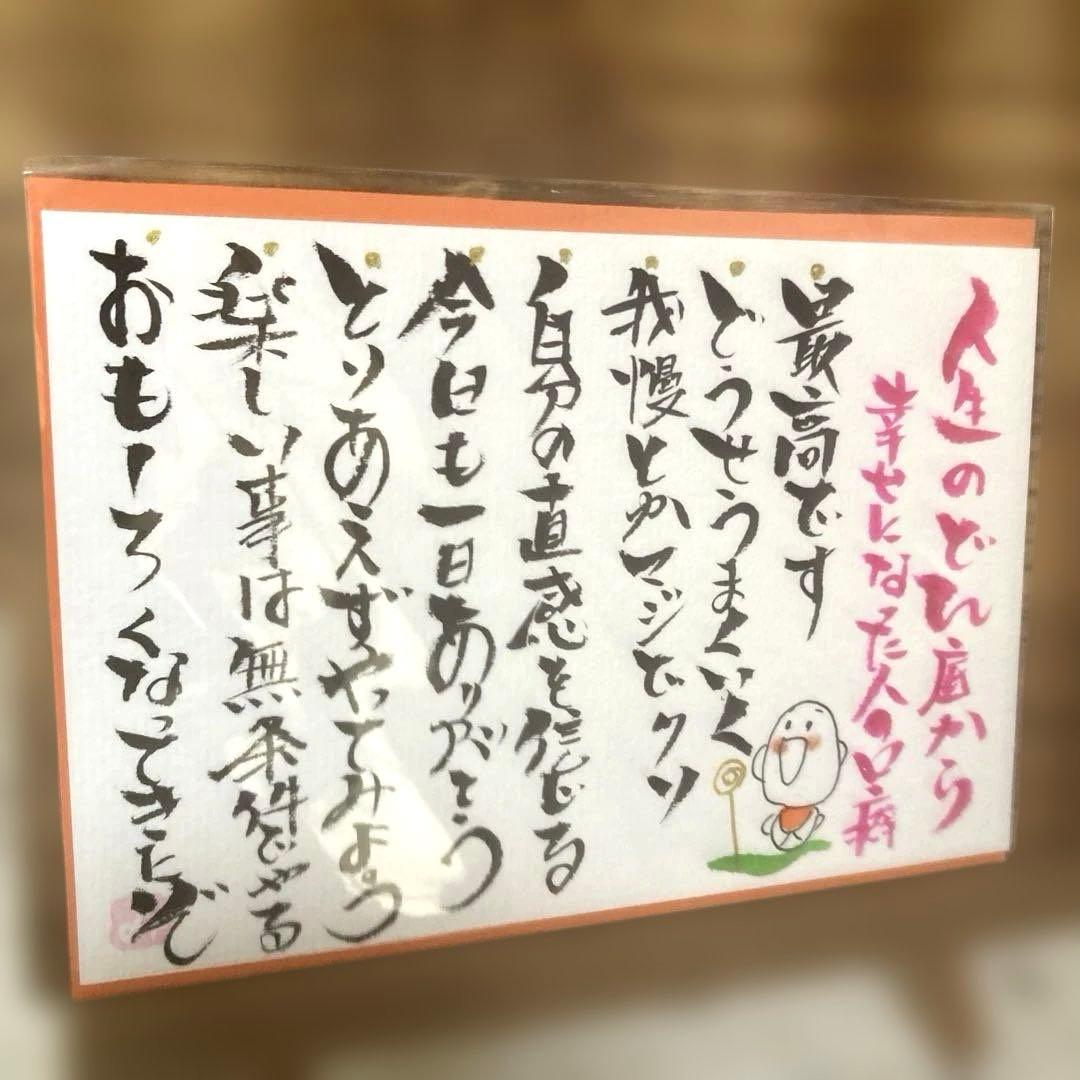 人生のどん底から
幸せになった人の口癖
最高です
どうせうまくいく
我慢とかマジでクソ
自分の直感を信じる
今日も一日ありがとう
とりあえずやってみよう
楽しい事は無条件でやる
おもしろくなってきたぞ